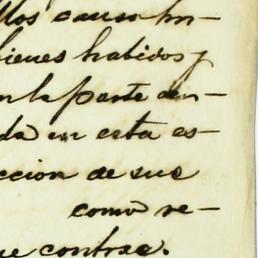 llos causa ha-
bienes habidos y
en la parte den-
da en esta es-
ccion de sus
como re-
ue contrae.